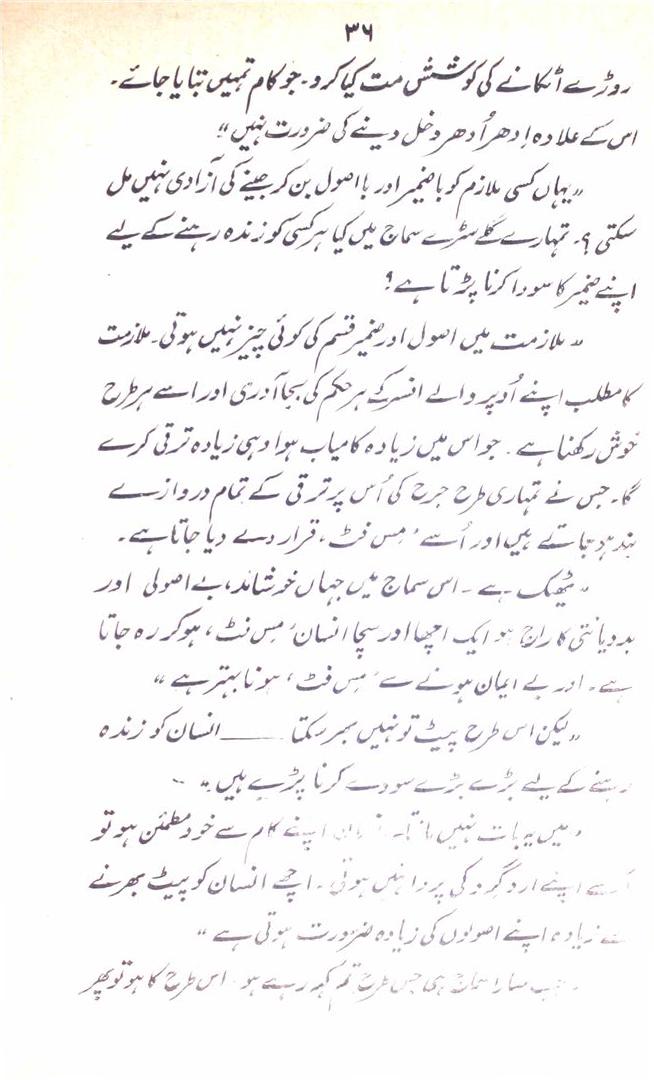 ۳۶
روڑے اٹکانے کی کوشش مت کیا کرو۔ جو کام تمہیں بتایا جائے۔
اس کے علاوہ اِدھر اُدھر دخل دینے کی ضرورت نہیں"
"یہاں کسی ملازم کو باضمیر اور با اصول بن کر جینے کی آزادی نہیں مل
سکتی ؟۔ تمہارے گلے سڑے سماج میں کیا ہر کسی کو زندہ رہنے کے لیے
اپنے ضمیر کا سودا کرنا پڑتا ہے ؟
"ملازمت میں اصول اور ضمیر قسم کی کوئی چیز نہیں ہوتی۔ ملازمت
کا مطلب اپنے اُوپر والے افسر کے ہر حکم کی بجا آوری اور اسے ہر طرح
خوش رکھنا ہے۔ جو اس میں زیادہ کامیاب ہوا وہی زیادہ ترقی کرے
گا۔ جس نے تمہاری طرح جرح کی اُس پر ترقی کے تمام دروازے
بند ہو جاتے ہیں اور اُسے 'مِس فٹ' قرار دے دیا جاتا ہے۔
"ٹھیک ہے ۔ اس سماج میں جہاں خوشامد، بے اصولی اور
بددیانتی کا راج ہو ایک اچھا اور سچا انسان 'مِس فٹ' ہو کر رہ جاتا
ہے۔ اور بے ایمان ہونے سے 'مِس فٹ' ہونا بہتر ہے"
"لیکن اس طرح پیٹ تو نہیں بھر سکتا ــــــ انسان کو زندہ
رہنے کے لیے بڑے بڑے سودے کرنا پڑے ہیں۔"
"میں یہ بات نہیں مانتا۔ انسان اپنے کام سے خود مطمئن ہو تو
اُسے اپنے ارد گرد کی پروا نہیں ہوتی۔ اچھے انسان کو پیٹ بھرنے
سے زیادہ اپنے اصولوں کی زیادہ ضرورت ہوتی ہے"
"جب سارا سماج ہی جس طرح تم کہہ رہے ہو۔ اس طرح کا ہو تو پھر